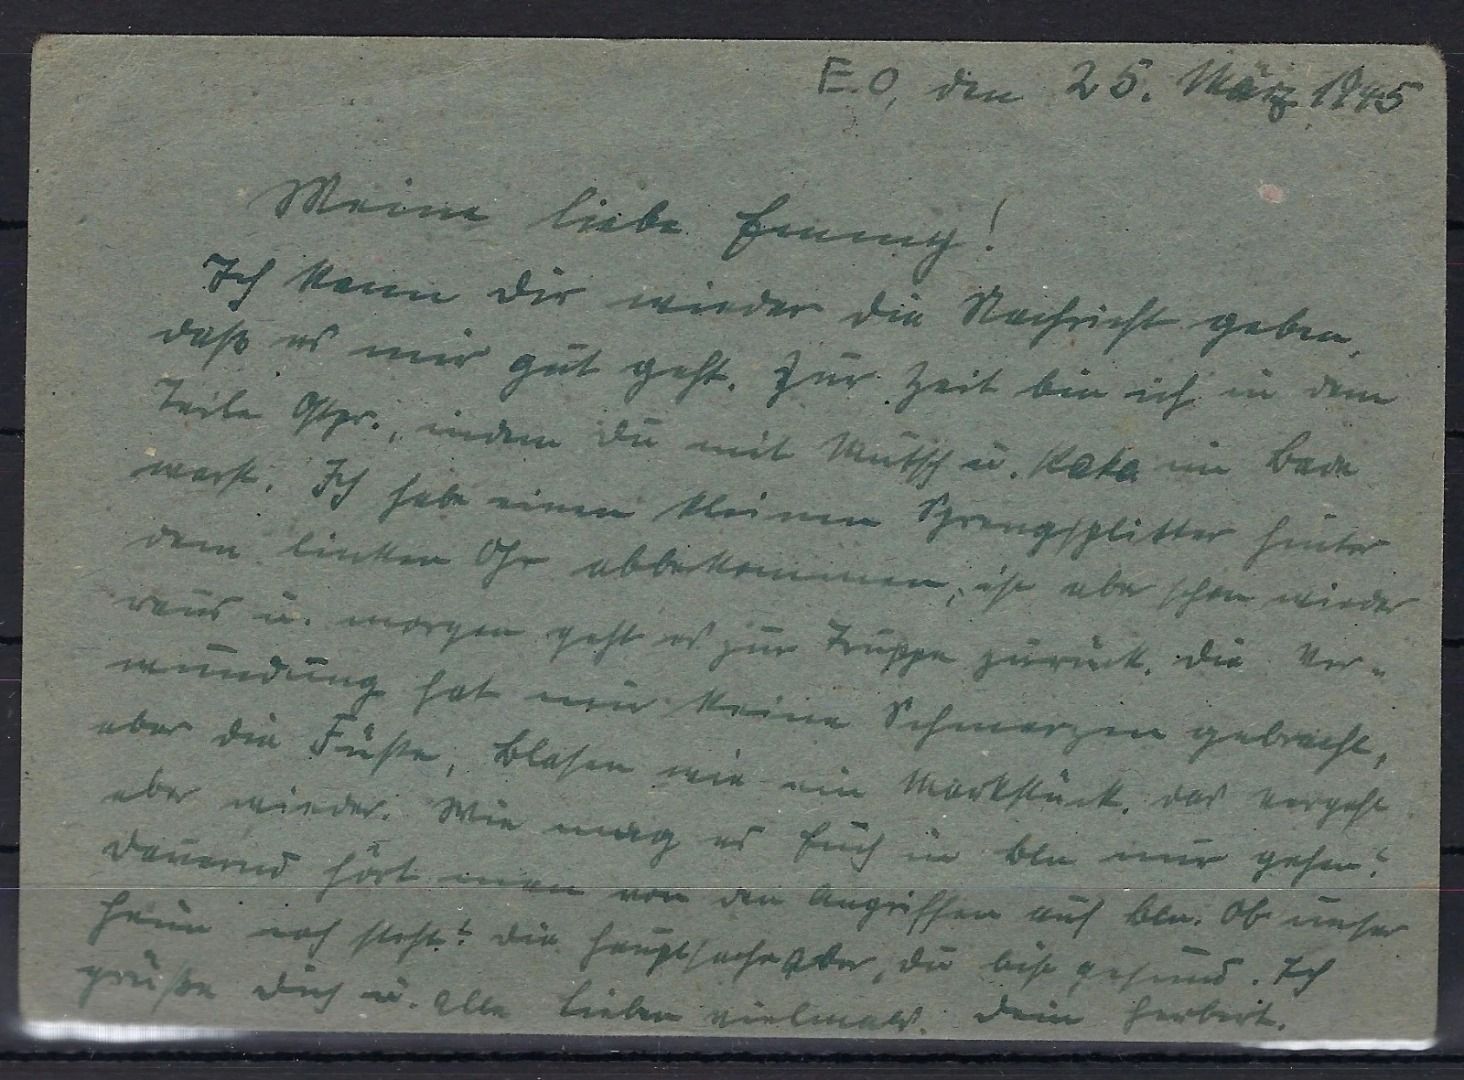 E.O, den 25. März 1945
Meine liebe Emmy!
Ich kann Dir wieder die Nachricht geben,
daß es mir gut geht. Zur Zeit bin ich in dem
Teile Ostpr., indem Du mit Mutsch u. Kata im Bade
warst. Ich habe einen kleinen Sprengsplitter hinter
dem linken Ohr abbekommen, ist aber schon wieder
raus u. morgen geht es zur Truppe zurück. Die Ver-
wundung hat mir keine Schmerzen gebracht,
aber die Füße, Blasen wie ein Markstück. Das vergeht
aber wieder. Wie mag es Euch in Bln nur gehen?
Dauernd hört man von den Angriffen auf Bln. Ob unser
Heim noch steht? Die Hauptsache aber, Du bist gesund. Ich
grüße Dich u. alle Lieben vielmals. Dein Herbert.